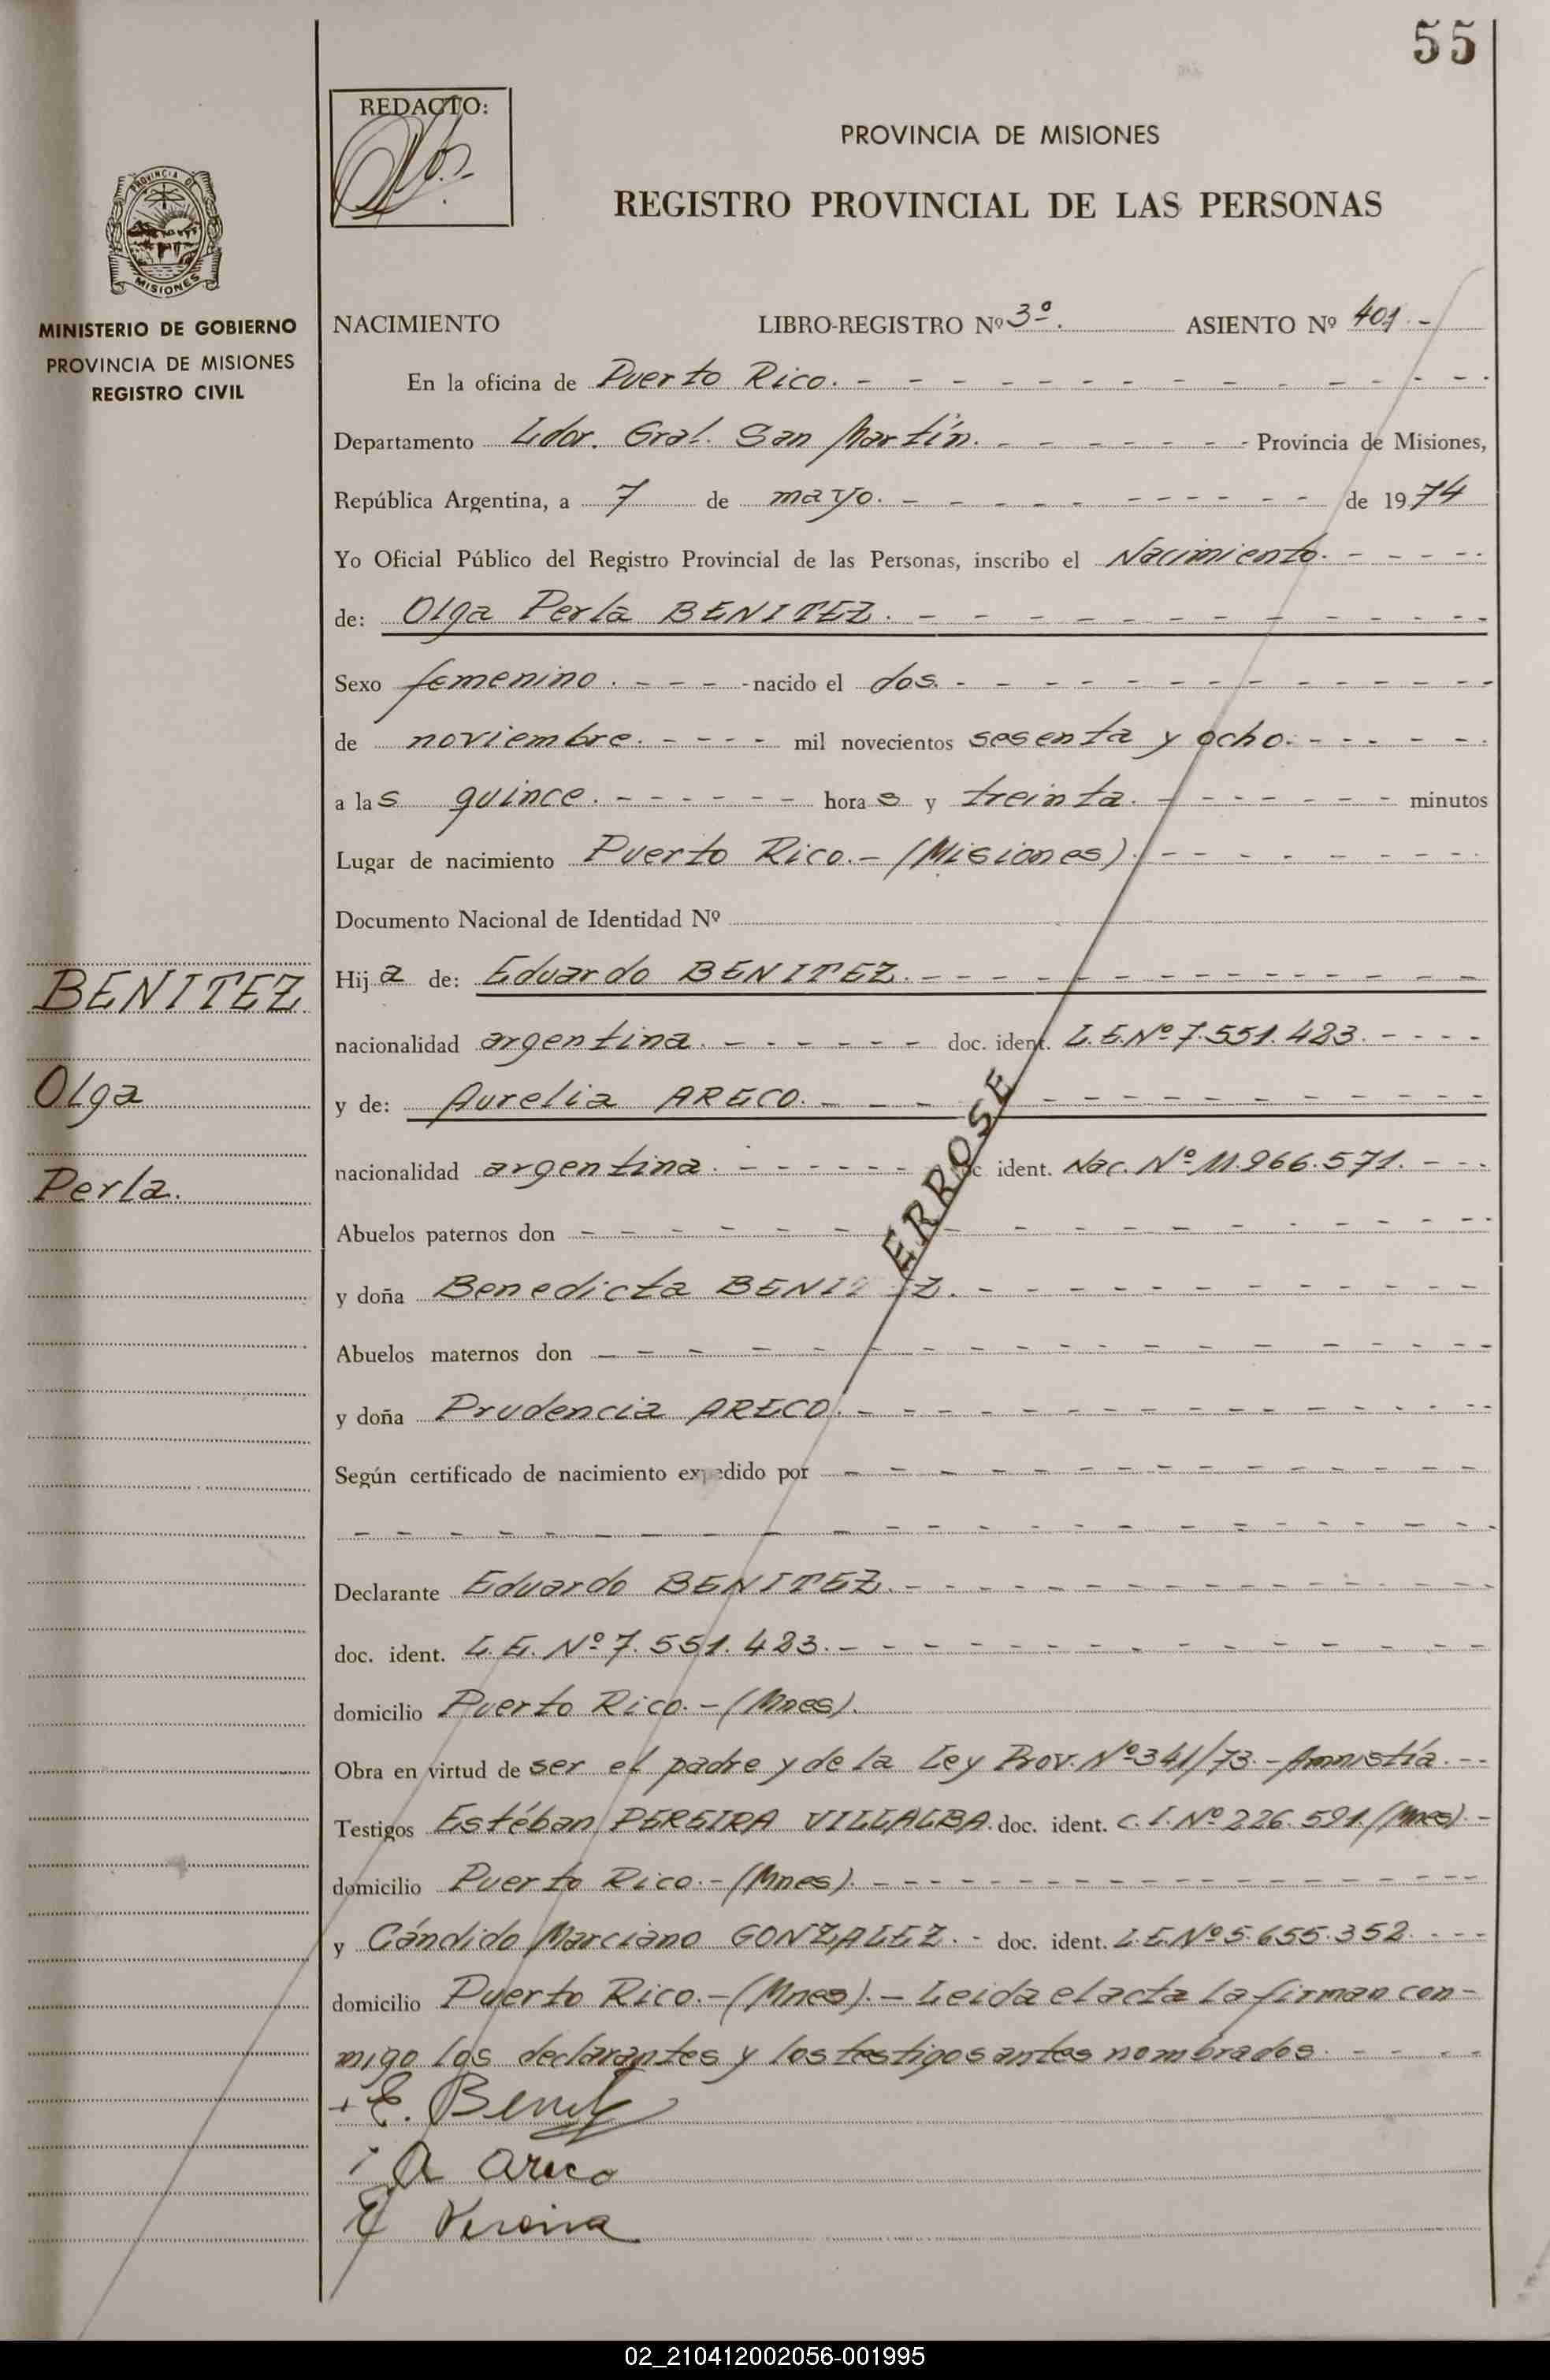 55
REDACTO:
PROVINCIA DE MISIONES
REGISTRO PROVINCIAL DE LAS PERSONAS
PROVINCIA DE
MISIONES
MINISTERIO DE GOBIERNO
PROVINCIA DE MISIONES
REGISTRO CIVIL
NACIMIENTO LIBRO-REGISTRO Nº 3º. ASIENTO Nº 401.-
En la oficina de Puerto Rico.
Departamento Ldor. Gral. San Martín. Provincia de Misiones,
República Argentina, a 7 de mayo. de 1974
Yo Oficial Público del Registro Provincial de las Personas, inscribo el Nacimiento.
de: Olga Perla BENITEZ.
Sexo femenino. nacido el dos.
de noviembre. mil novecientos sesenta y ocho.
a las quince. horas y treinta. minutos
Lugar de nacimiento Puerto Rico.- (Misiones).
Documento Nacional de Identidad Nº
BENITEZ
Olga
Perla.
Hija de: Eduardo BENITEZ.
nacionalidad argentina. doc. ident. L.E.Nº 7.551.423.
y de: Aurelia ARECO.
nacionalidad argentina. ident. Nac. Nº 11.966.571.
ERROSE
Abuelos paternos don
y doña Benedicta BENITEZ.
Abuelos maternos don
y doña Prudencia ARECO.
Según certificado de nacimiento expedido por
Declarante Eduardo BENITEZ.
doc. ident. L.E. Nº 7.551.423.
domicilio Puerto Rico.-(Mnes).
Obra en virtud de ser el padre y de la Ley Prov. Nº 341/73.- Amnistía.
Testigos Estéban PEREIRA VILLALBA. doc. ident. C.I. Nº 226.591.(Mnes).-
domicilio Puerto Rico.-(Mnes).
y Cándido Marciano GONZALEZ.- doc. ident. L.E.Nº 5.655.352.
domicilio Puerto Rico.-(Mnes).- Leida el acta la firman con-
migo los declarantes y los testigos antes nombrados.
E. Benitez
A Areco
E Pereira
02_210412002056-001995